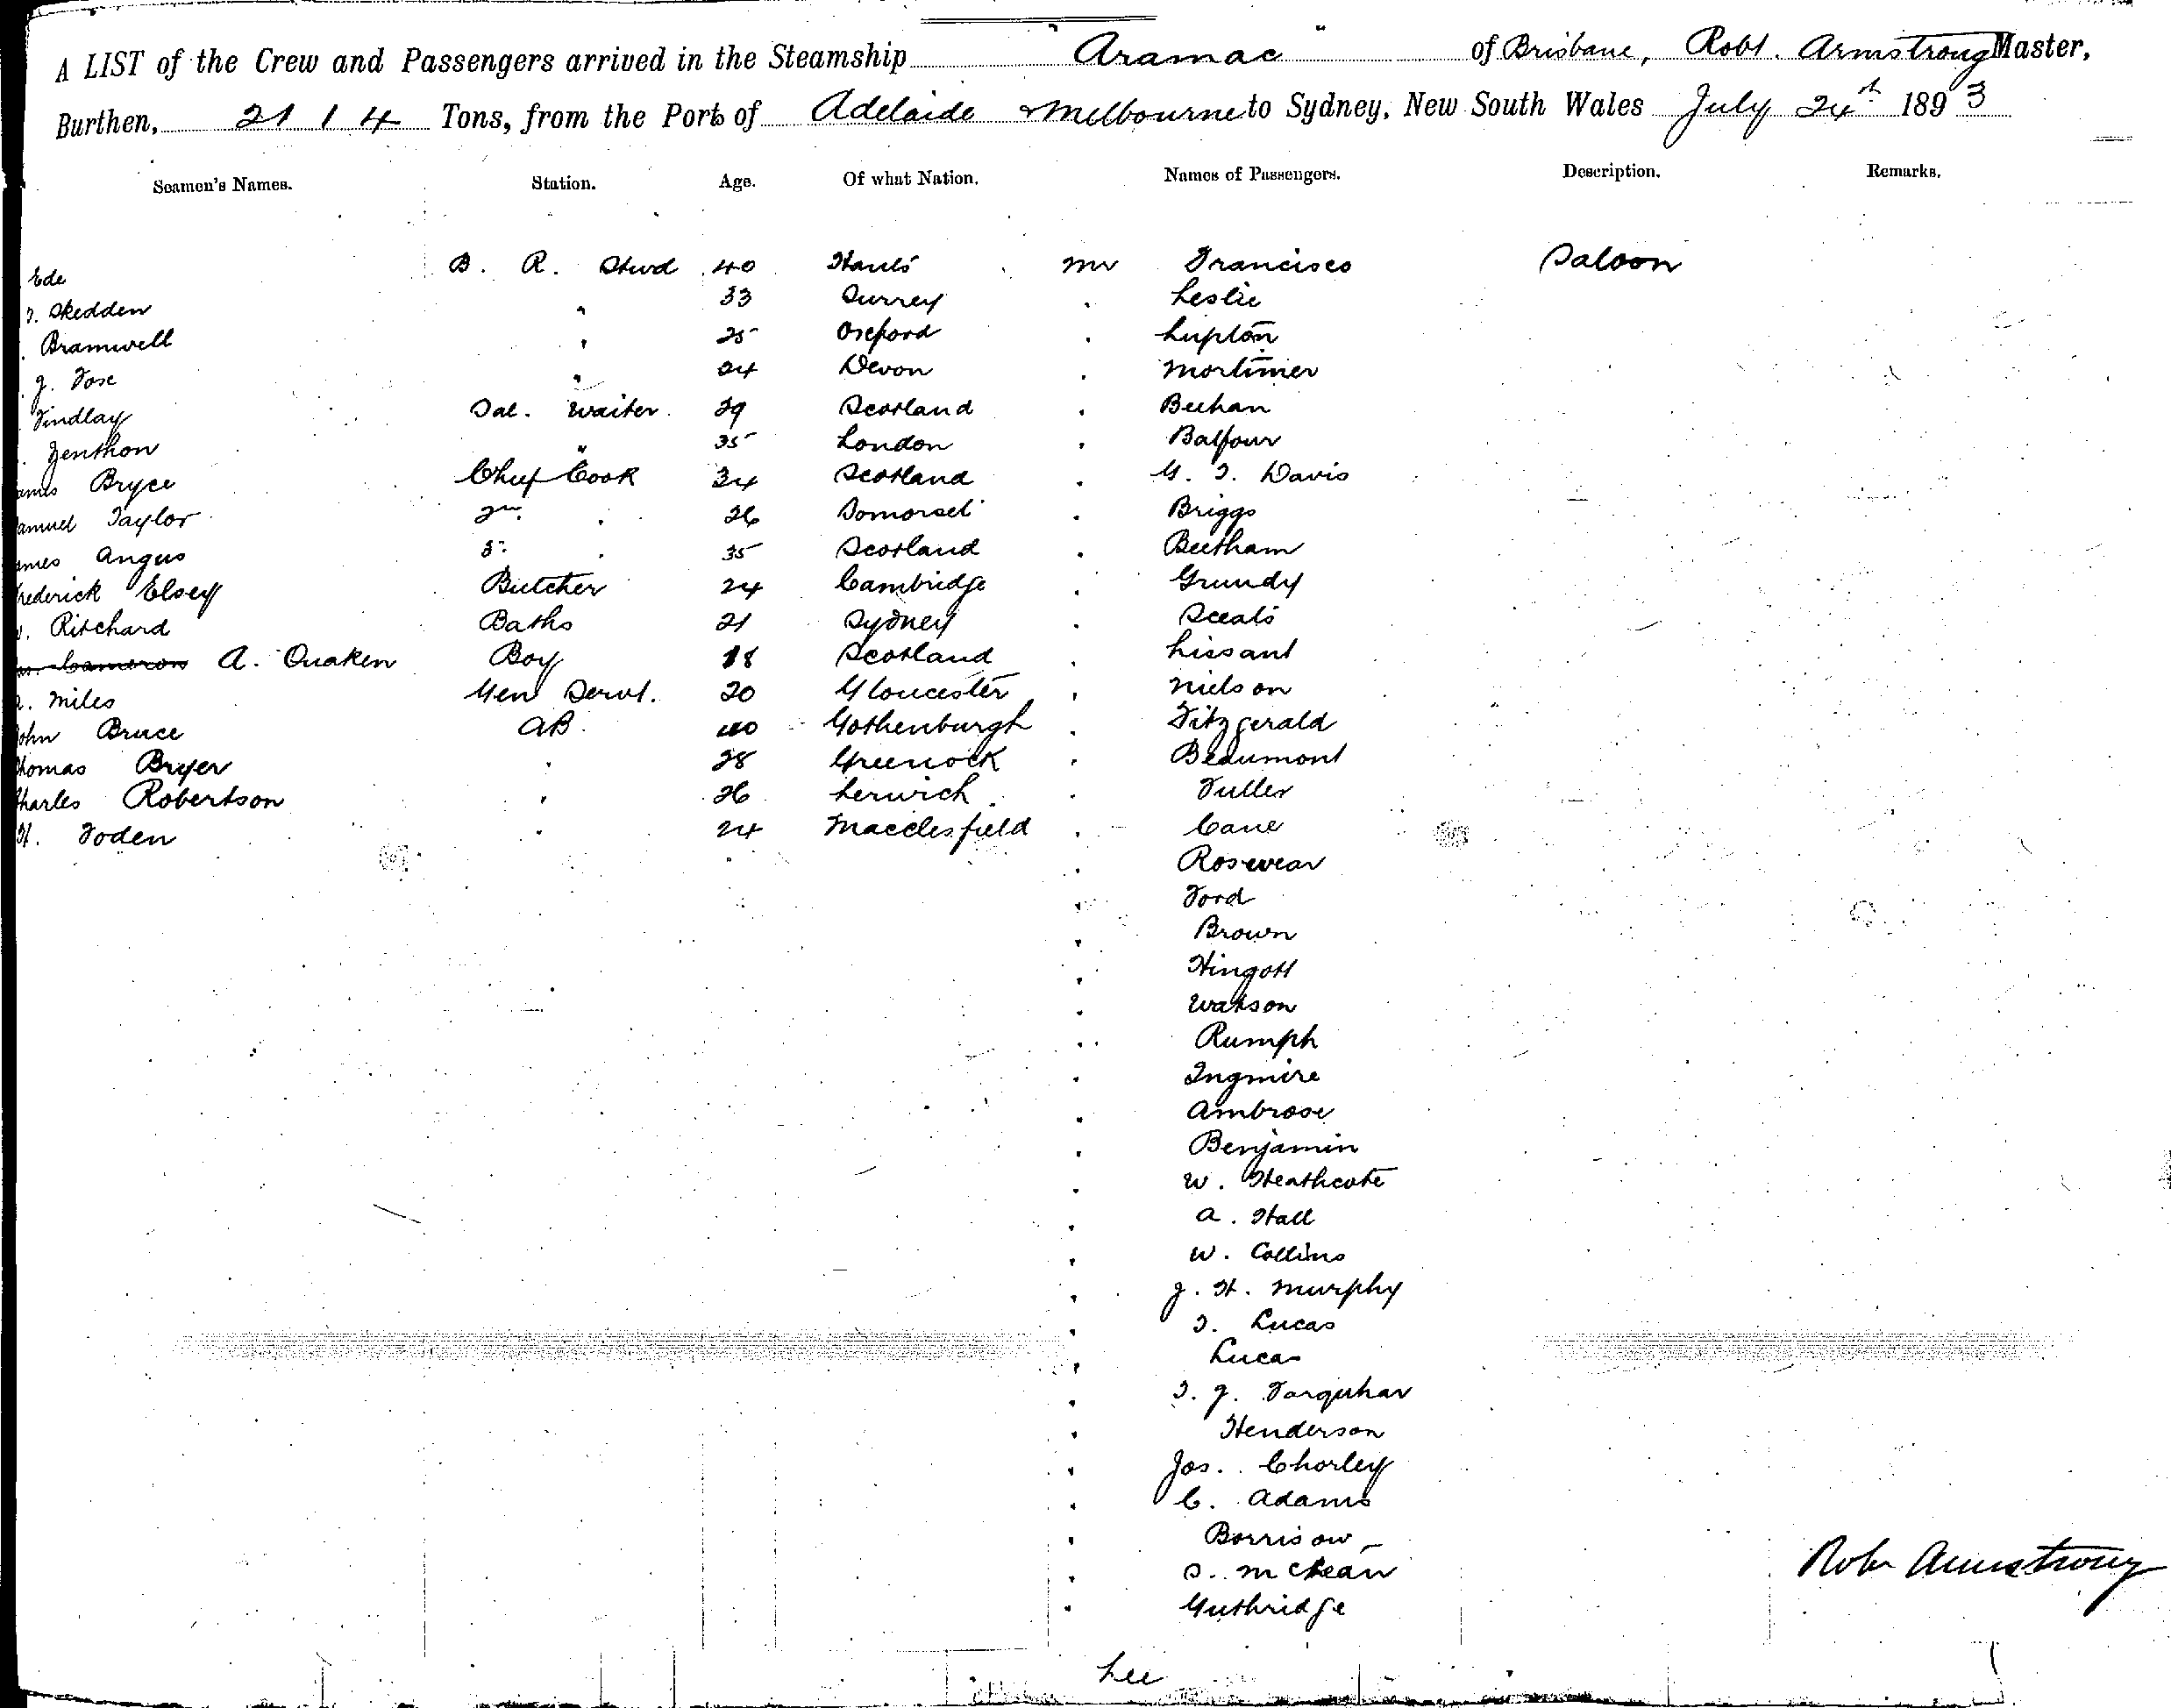 A LIST of the Crew and Passengers arrived in the Steamship "Aramac" of Brisbane, Robt. Armstrong Master,
Burthen, 2114 Tons, from the Port of Adelaide & Melbourne to Sydney, New South Wales July 24th 1893
Seamen's Names. Station. Age. Of what Nation. Names of Passengers. Description. Remarks.
Ede B. R. Stwd 40 Hants Mr Francisco Saloon
Skedden " 33 Surrey " Leslie
Bramwell " 25 Oxford " Lupton
J. Fose " 24 Devon " Mortimer
Findlay Sal. Waiter 29 Scotland " Beehan
Zenthon " 35 London " Balfour
ames Bryce Chief Cook 34 Scotland " G. T. Davis
amuel Taylor 2nd " 26 Somerset " Briggs
ames Angus 3rd " 35 Scotland " Beetham
rederick Elsey Butcher 24 Cambridge " Grundy
Ritchard Baths 21 Sydney " Sceats
Cameron A. Quaken Boy 18 Scotland " Lissant
Miles Gen Servt. 20 Gloucester " Nielson
ohn Bruce AB. 40 Gothenburgh " Fitzgerald
homas Bryer " 28 Greenock " Beaumont
harles Robertson " 26 Lerwich " Fuller
H. Foden " 24 Macclesfield " Cane
" Rosewear
" Ford
" Brown
" Hingott
" Watson
" Rumph
" Ingmire
" Ambrose
" Benjamin
" W. Heathcote
" A. Hall
" W. Collins
" J. H. Murphy
" T. Lucas
" Lucas
" T. J. Farquhar
" Henderson
" Jos. Chorley
" C. Adams
" Borrisow
" S. McLean
" Guthridge
Robt Armstrong
Lee